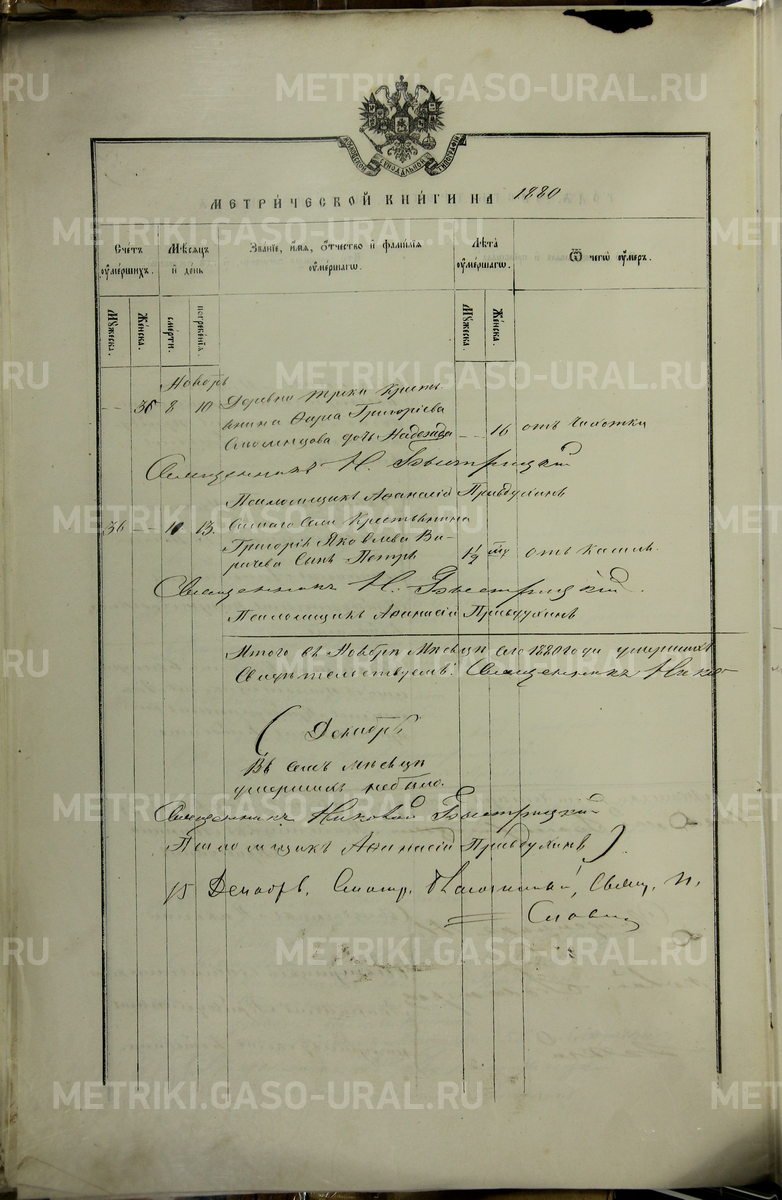 МЕТРИ́ЧЕСКОЙ КНИ́ГИ НА 1880
Счетъ оумершихъ.
Мѣсяцъ и день
Званіе, имя, отчество и фамилія оумершагѡ.
Лѣта оумершагѡ.
Ѿ чегѡ оумеръ.
Мꙋжеска.
Женска.
смерти.
погребенія.
Мꙋжеска.
Женска.
Ноябрь
— 36 8 10 Деревни Крестьянина Григоріева дочь Надежда — 16 отъ чахотки
Священникъ Н. Быстрицкій
Псаломщикъ Афанасій Правдухинъ
36 — 10 13. Сего Села Крестьянина
Григорія Яковлева
Сынъ Петръ 1½ отъ кашля.
Священникъ Н. Быстрицкій.
Псаломщикъ Афанасій Правдухинъ
Итого въ Ноябрѣ Мѣсяцѣ сего 1880 года умершихъ
Свидѣтельствуемъ: Священникъ Никo-
Декабрь
Въ семъ мѣсяцѣ
умершихъ небыло.
Священникъ Николай Быстрицкій
Псаломщикъ Афанасій Правдухинъ
15 Декабря. Смотр. Благочинный, Свящ. П.
METRIKI.GASO-URAL.RU